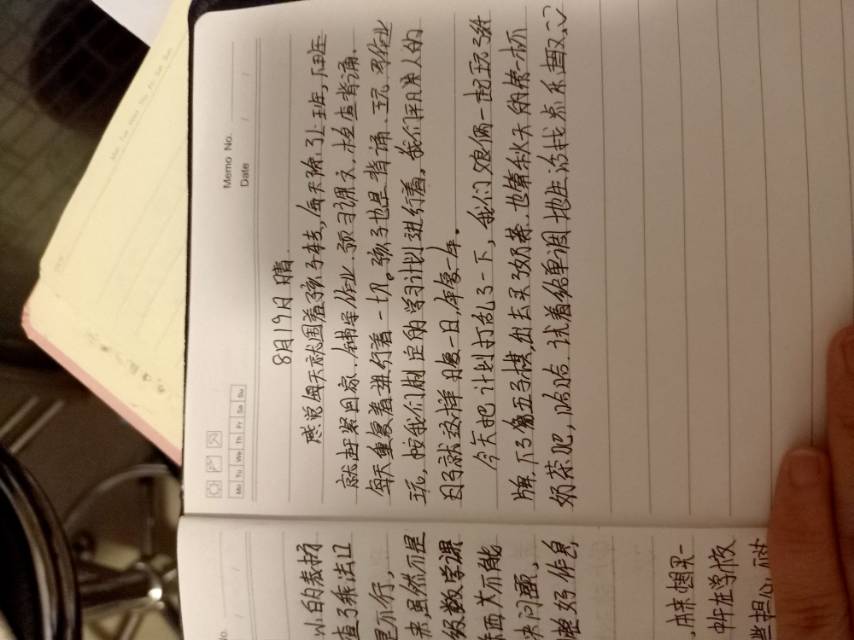 Memo No.
Date / /
Mo Tu We Th Fr Sa Su
8月19日 晴
感觉每天就围着孩子转，每天除了上班，下班
就赶紧回家、辅导作业、预习课文、检查背诵。
每天重复着进行着一切。孩子也是背诵、玩、写作业
玩，按我们制定的学习计划进行着。我们平凡人的
日子就这样日复一日，年复一年。
今天把计划打乱了一下，我们娘俩一起玩了纸
牌、下了会五子棋，出去买了奶茶，也算秋天的第一杯
奶茶吧，哈哈，试着给单调地生活找点乐趣
以的表扬
查了乘法口
是不行，
来虽然不是
级数学课
东西大不能
决问题，
作息
中午在学校